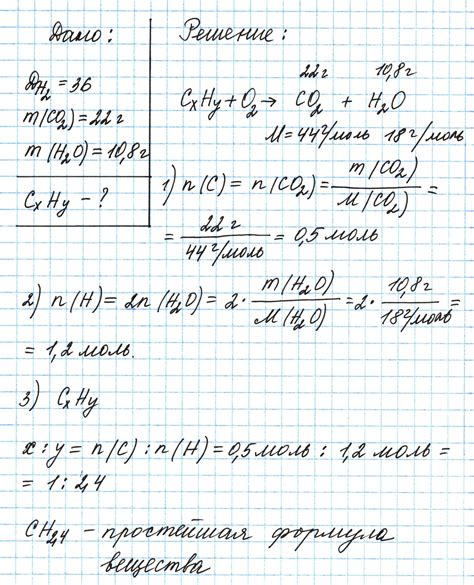 Дано:
D_H₂ = 36
m(CO₂) = 22 г
m(H₂O) = 10,8 г
CxHy - ?
Решение:
22 г 10,8 г
CxHy + O₂ → CO₂ + H₂O
M = 44 г/моль 18 г/моль
1) n(C) = n(CO₂) = m(CO₂) / M(CO₂) =
= 22 г / 44 г/моль = 0,5 моль
2) n(H) = 2n(H₂O) = 2 · m(H₂O) / M(H₂O) = 2 · 10,8 г / 18 г/моль =
= 1,2 моль.
3) CxHy
x : y = n(C) : n(H) = 0,5 моль : 1,2 моль =
= 1 : 2,4
CH₂,₄ - простейшая формула
вещества